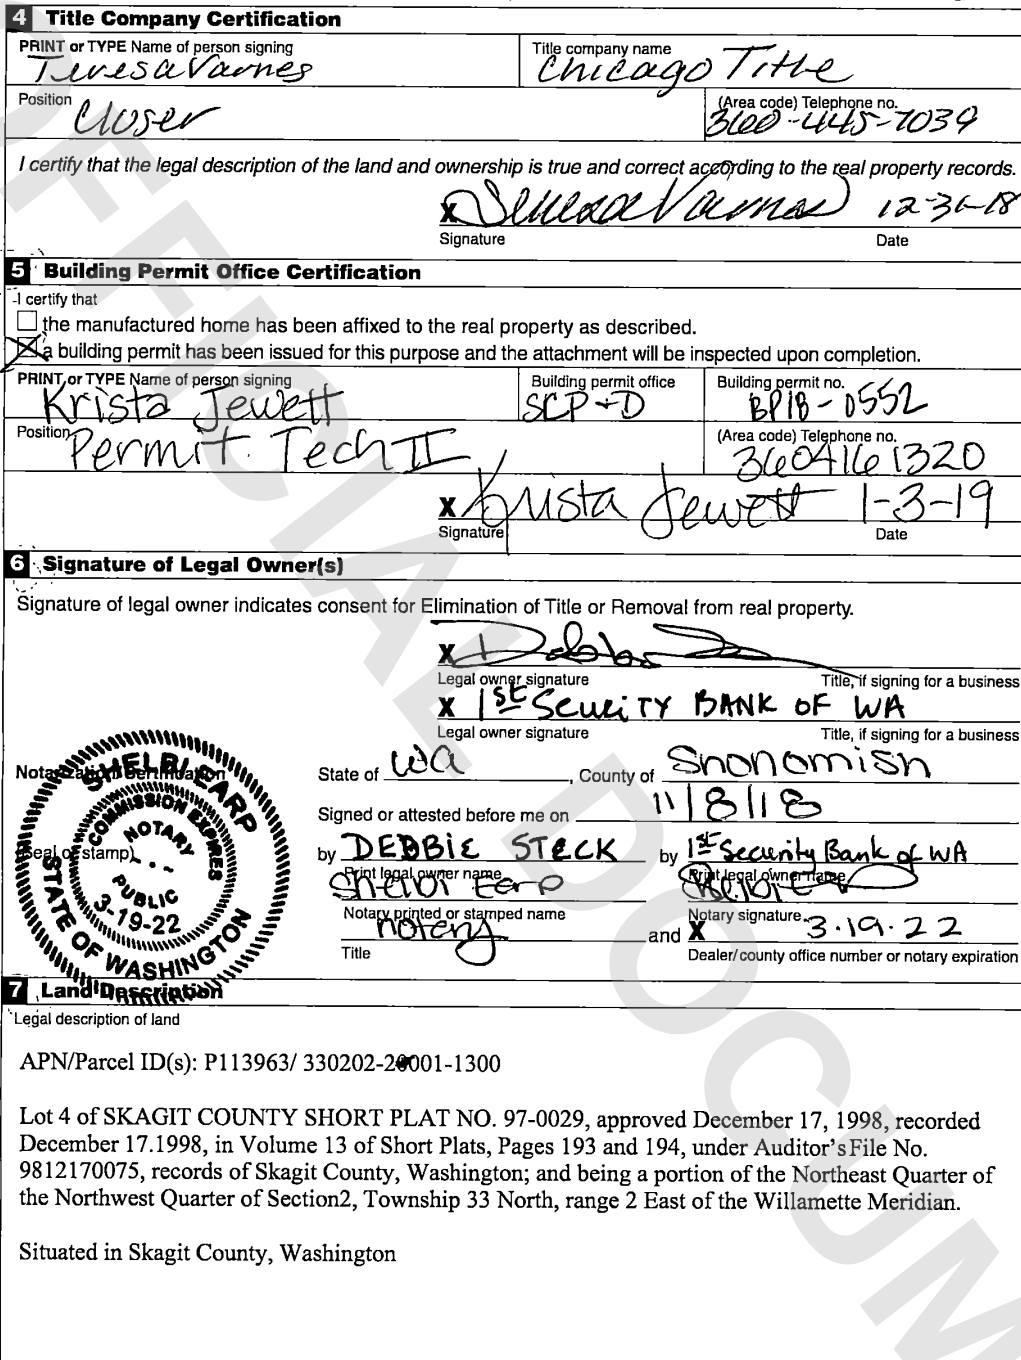 4 Title Company Certification
PRINT or TYPE Name of person signing
Teresa Varnes
Title company name
Chicago Title
Position
Closer
(Area code) Telephone no.
360-445-7039
I certify that the legal description of the land and ownership is true and correct according to the real property records.
X Teresa Varnes 12-31-18
Signature Date
5 Building Permit Office Certification
I certify that
the manufactured home has been affixed to the real property as described.
a building permit has been issued for this purpose and the attachment will be inspected upon completion.
PRINT or TYPE Name of person signing
Krista Jewett
Building permit office
SCP+D
Building permit no.
BP18-0552
Position
Permit Tech II
(Area code) Telephone no.
3604161320
X Krista Jewett 1-3-19
Signature Date
6 Signature of Legal Owner(s)
Signature of legal owner indicates consent for Elimination of Title or Removal from real property.
X
Legal owner signature Title, if signing for a business
X 1st Secuity BANK OF WA
Legal owner signature Title, if signing for a business
Notarization/Certification
State of WA, County of Snohomish
Signed or attested before me on 11/8/18
(Seal or stamp)
by DEBBIE STECK by 1st Security Bank of WA
Print legal owner name Print legal owner name
Shelbi Earp
Notary printed or stamped name Notary signature
notary and X 3.19.22
Title Dealer/county office number or notary expiration
SHELBI EARP
COMMISSION EXPIRES
NOTARY
PUBLIC
3-19-22
STATE OF WASHINGTON
7 Land Description
Legal description of land
APN/Parcel ID(s): P113963/ 330202-20001-1300
Lot 4 of SKAGIT COUNTY SHORT PLAT NO. 97-0029, approved December 17, 1998, recorded
December 17.1998, in Volume 13 of Short Plats, Pages 193 and 194, under Auditor'sFile No.
9812170075, records of Skagit County, Washington; and being a portion of the Northeast Quarter of
the Northwest Quarter of Section2, Township 33 North, range 2 East of the Willamette Meridian.
Situated in Skagit County, Washington
OFFICIAL DOCUM